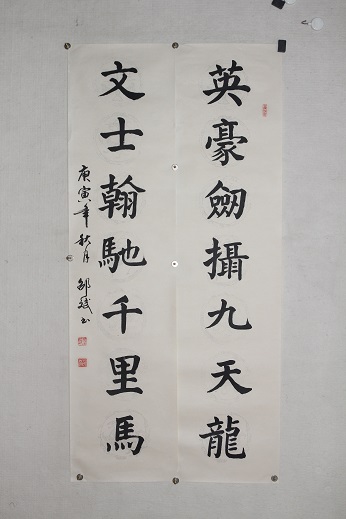 英豪劒攝九天龍
文士翰馳千里馬
庚寅年秋月 鄒斌書